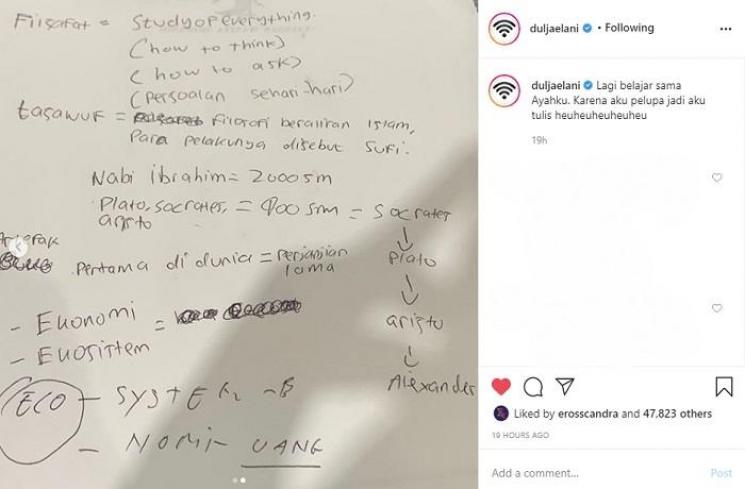 Filsafat = Study of everything.
(how to think)
(how to ask)
(Persoalan sehari-hari)
tasawuf = Filosofi beraliran Islam,
Para pelakunya disebut Sufi.
Nabi ibrahim = 2000 sm
Plato, Socrates, = 400 sm = Socrates
aristo
Plato
pertama di dunia = Perjanjian
lama
aristo
Alexander
- Ekonomi =
- Ekosistem
ECO - SYSTEM
- NOMI - UANG
duljaelani • Following
duljaelani Lagi belajar sama
Ayahku. Karena aku pelupa jadi aku
tulis heuheuheuheuheu
19h
Liked by erosscandra and 47,823 others
19 HOURS AGO
Add a comment...
Post